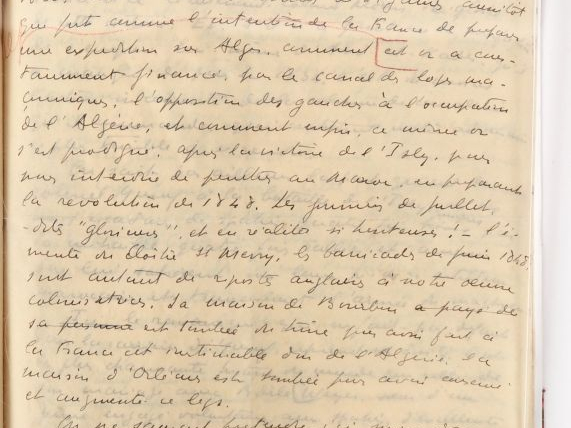 que fut connue l'intention de la France de préparer
une expédition sur Alger, comment cet or a cons-
tamment financé, par le canal des loges ma-
çonniques, l'opposition des gauches à l'occupation
de l'Algérie, et comment enfin, ce même or
s'est prodigué, après la victoire de l'Isly, pour
nous interdire de pénétrer au Maroc, en préparant
la révolution de 1848. Les journées de juillet,
- dites "glorieuses", et en réalité si honteuses! - l'é-
meute du Cloître St Merry, les barricades de juin 1848,
sont autant de ripostes anglaises à notre œuvre
colonisatrice. La maison de Bourbon a payé de
sa personne est tombée du trône pour avoir fait à
la France cet inestimable don de l'Algérie. La
maison d'Orléans est tombée pour avoir
et augmenté ce legs.